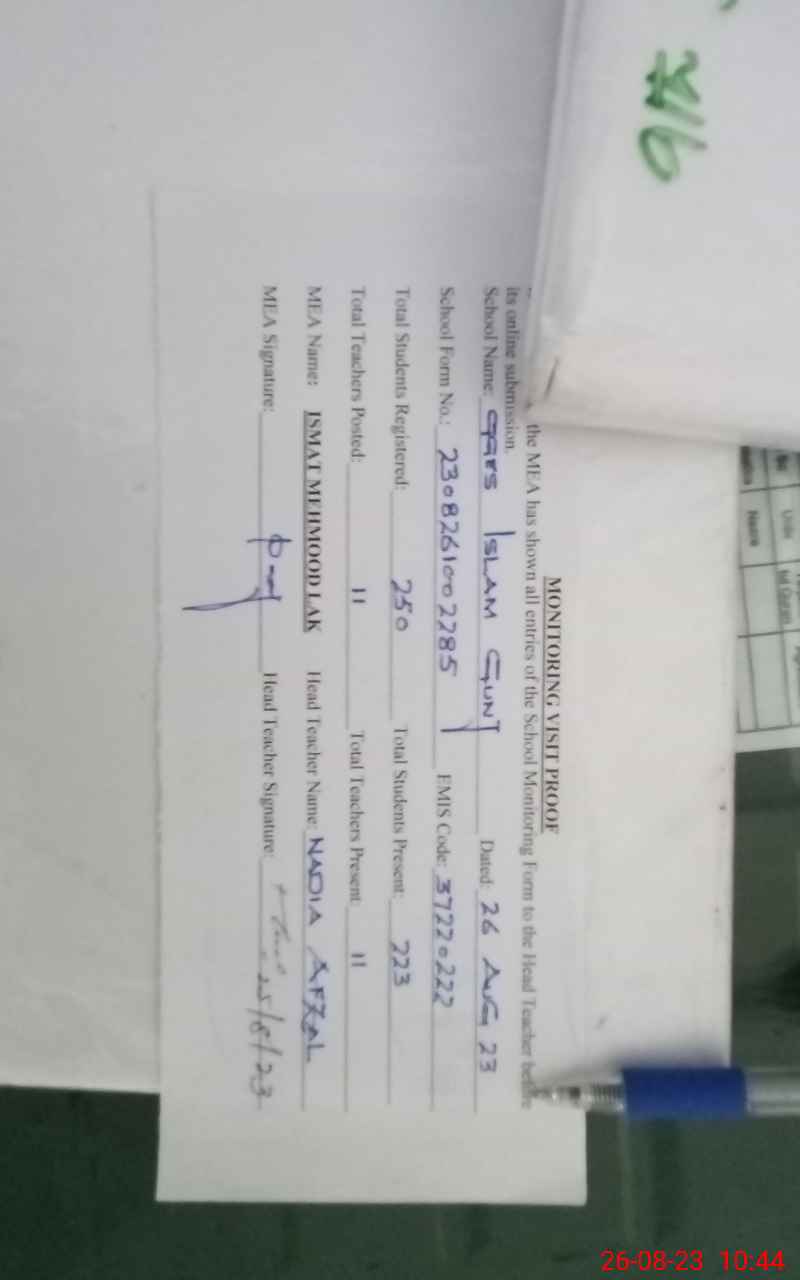 MONITORING VISIT PROOF
the MEA has shown all entries of the School Monitoring Form to the Head Teacher before
its online submission.
School Name: GGES ISLAM GUNJ Dated: 26 AUG 23
School Form No.: 2308261002285 EMIS Code: 37220222
Total Students Registered: 250 Total Students Present: 223
Total Teachers Posted: 11 Total Teachers Present: 11
MEA Name: ISMAT MEHMOOD LAK Head Teacher Name: NADIA AFZAL
MEA Signature: Head Teacher Signature: 25/8/23
Name
26-08-23 10:44